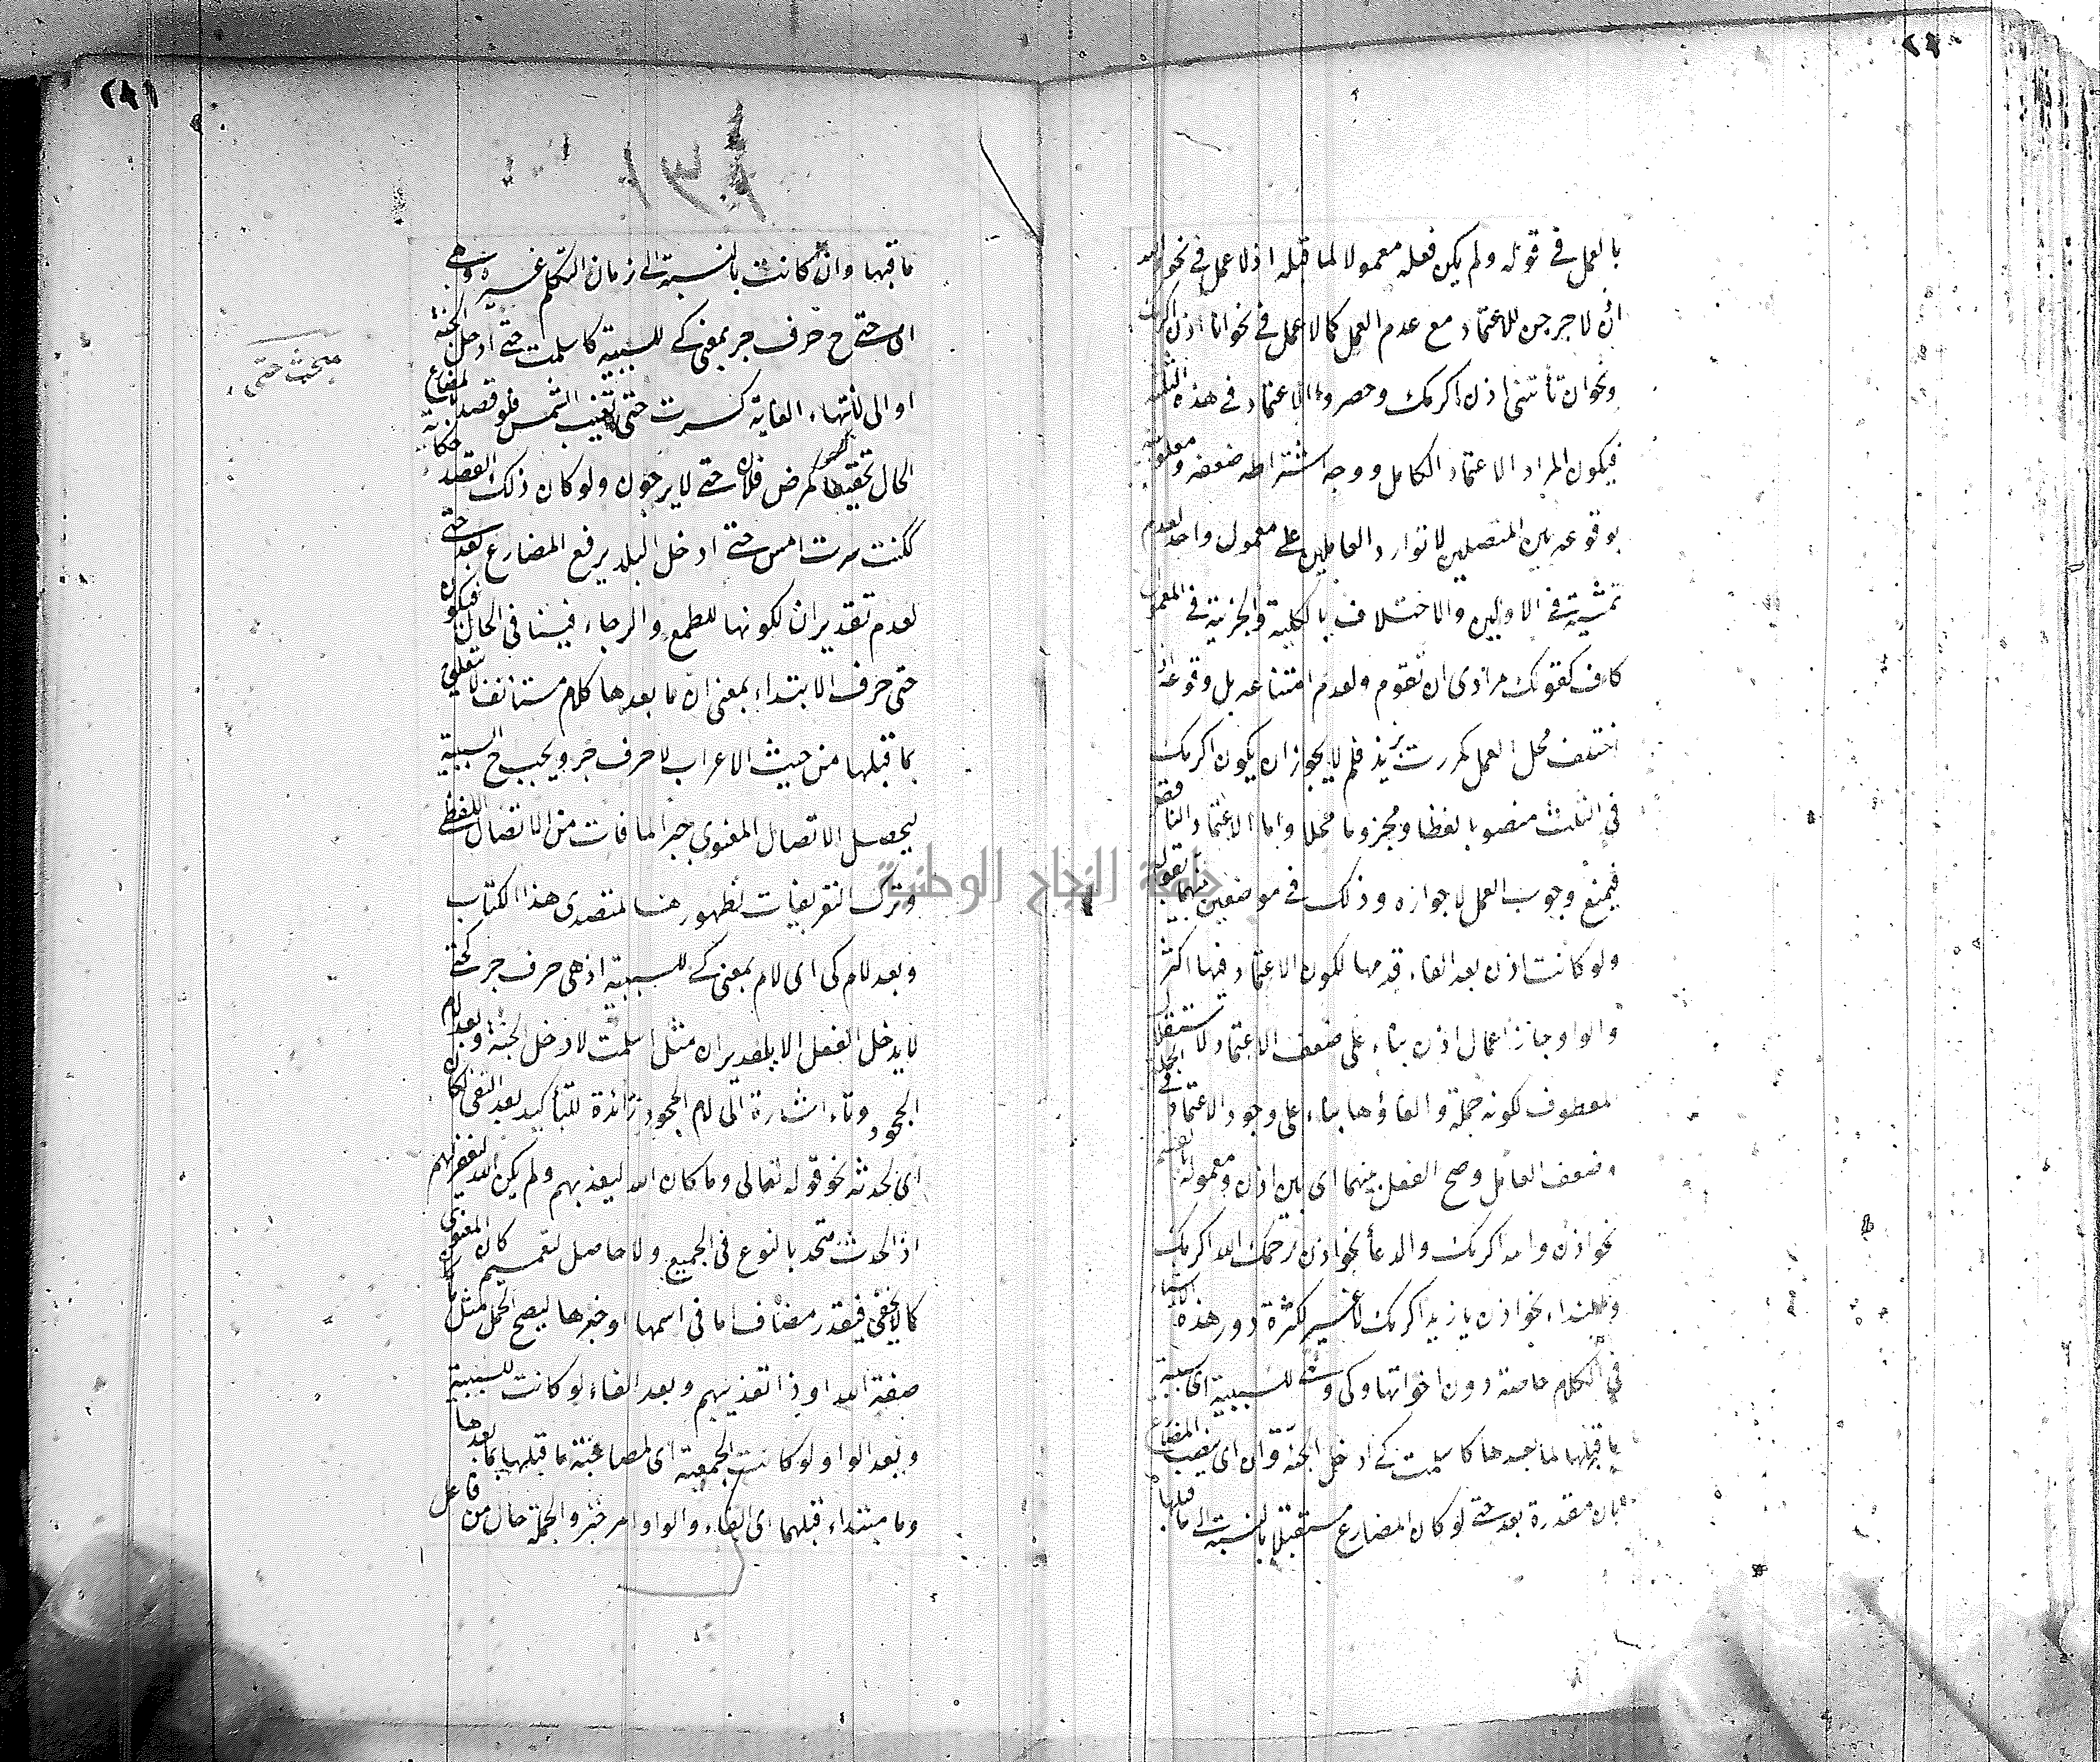 بالعمل في قوله ولم يكن فعله معمولا لما قبله اذ لا عمل في نحو والله
اذن لا خرجن للاعتماد مع عدم العمل كما لا عمل في نحو انا اذن اكرمك
ونحو ان تأتني اذن اكرمك وحصروا الاعتماد في هذه الثلثة
فيكون المراد الاعتماد الكامل ووجه اشتراطه ضعفه
بوقوعه بين المتصلين لا توارد العاملين على معمول واحد لعدم
تمشيته في الاولين والاختلاف بالكلية والجزئية في المعمول
كاف كقولك مرادى ان تقوم ولعدم امتناعه بل وقوعه اذا
اختلف محل العمل كمررت بزيد فلم لا يجوز ان يكون اكرمك
في الثلث منصوبا لفظا ومجزوما محلا واما الاعتماد الناقص
فيمنع وجوب العمل لا جوازه وذلك في موضعين بينهما بقوله
ولو كانت اذن بعد الفاء قدمها لكون الاعتماد فيها اكثر
والواو جاز اعمال اذن بناء على ضعف الاعتماد لاستقلال
المعطوف لكونه جملة والغاؤها بناء على وجود الاعتماد في الجملة
وضعف العامل وصح الفصل بينهما اى بين اذن ومعموله بالقسم
نحو اذن والله اكرمك والدعاء نحو اذن رحمك الله اكرمك
والنداء نحو اذن يا زيد اكرمك لا غير لكثرة دور هذه الاشياء
في الكلام خاصة دون اخواتها وكى وهى للسببية اى سببية
ما قبلها لما بعدها كاسلمت كى ادخل الجنة وان اى ينصب المضارع
بان مقدرة بعد حتى لو كان المضارع مستقبلا بالنسبة الى ما قبلها
ما قبلها وان كانت بالنسبة الى زمان التكلم غيره وهى
اى حتى ح حرف جر بمعنى كى للسببية كاسلمت حتى ادخل الجنة
او الى لانتهاء الغاية كسرت حتى تغيب الشمس فلو قصد بالمضارع
الحال تحقيقا نحو مرض فلان حتى لا يرجون ولو كان ذلك القصد حكاية
ككنت سرت امس حتى ادخل البلد يرفع المضارع بعد حتى
لعدم تقدير ان لكونها للطمع والرجاء فينافى الحال فيكون
حتى حرف الابتداء بمعنى ان ما بعدها كلام مستأنف لا يتعلق
بما قبلها من حيث الاعراب لا حرف جر ويجب ح السببية
ليحصل الاتصال المعنوى جبرا لما فات من الاتصال اللفظى
وترك التعريفات لظهورها لمتصدى هذا الكتاب
وبعد لام كى اى لام بمعنى كى للسببية اذ هى حرف جر كحتى
لا يدخل الفعل الا بتقدير ان مثل اسلمت لادخل الجنة وبعد لام
الجحود وتاء اشارة الى لام الجحود زائدة للتأكيد بعد النفى لكان
اى لحدثه نحو قوله تعالى وما كان الله ليعذبهم ولم يكن الله ليغفر لهم
اذ الحدث متحد بالنوع فى الجميع ولا حاصل لتعميم كان المعنوى
كما لا يخفى فيقدر مضاف اما فى اسمها او خبرها ليصح الحمل مثل ما كان
صفة الله او ذا تعذيبهم وبعد الفاء لو كانت للسببية
وبعد الواو لو كانت للجمعية اى لمصاحبة ما قبلها بما بعدها
وما مبتداء قبلهما اى الفاء والواو امر خبر والجملة حال من فاعل
مبحث حتى
جامعة النجاح الوطنية